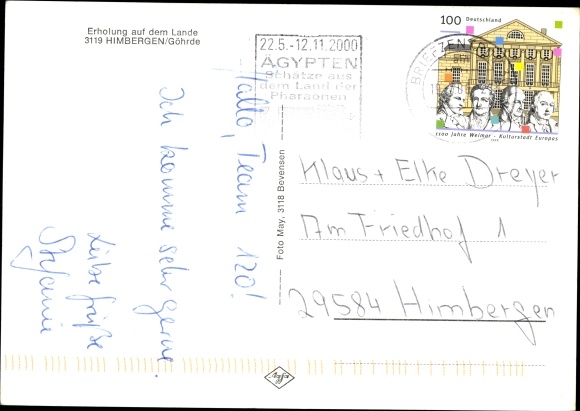 Erholung auf dem Lande
3119 HIMBERGEN/Göhrde
22.5.-12.11.2000
ÄGYPTEN
Schätze aus
dem Land der
Pharaonen
BRIEFZENT
100 Deutschland
1100 Jahre Weimar - Kulturstadt Europas
Hallo, Team 120!
Ich komme sehr gerne.
Liebe Grüße
Stefanie
Foto May, 3118 Bevensen
Klaus + Elke Dreyer
Am Friedhof 1
29584 Himbergen
Agfa